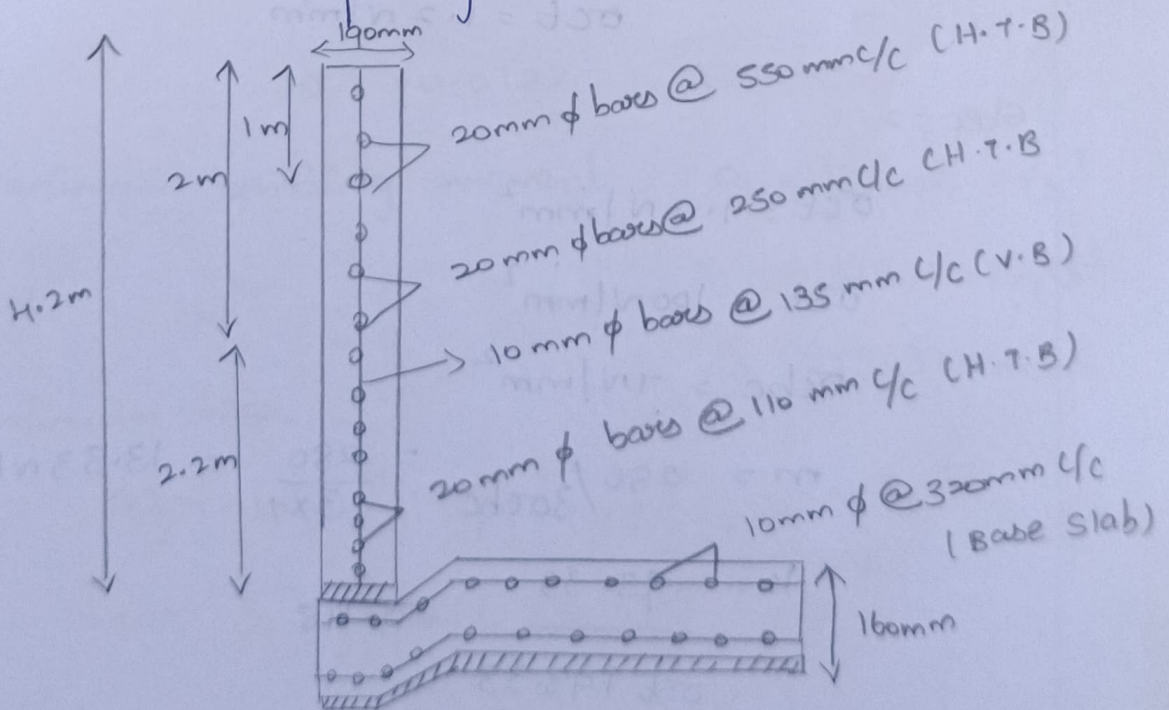 190mm
20mm ϕ bars @ 550mm c/c (H.T.B)
1m
2m
20mm ϕ bars @ 250mm c/c (H.T.B
4.2m
10mm ϕ bars @ 135mm c/c (V.B)
20mm ϕ bars @ 110 mm c/c (H.T.B)
2.2m
10mm ϕ @ 320mm c/c
(Base Slab)
160mm